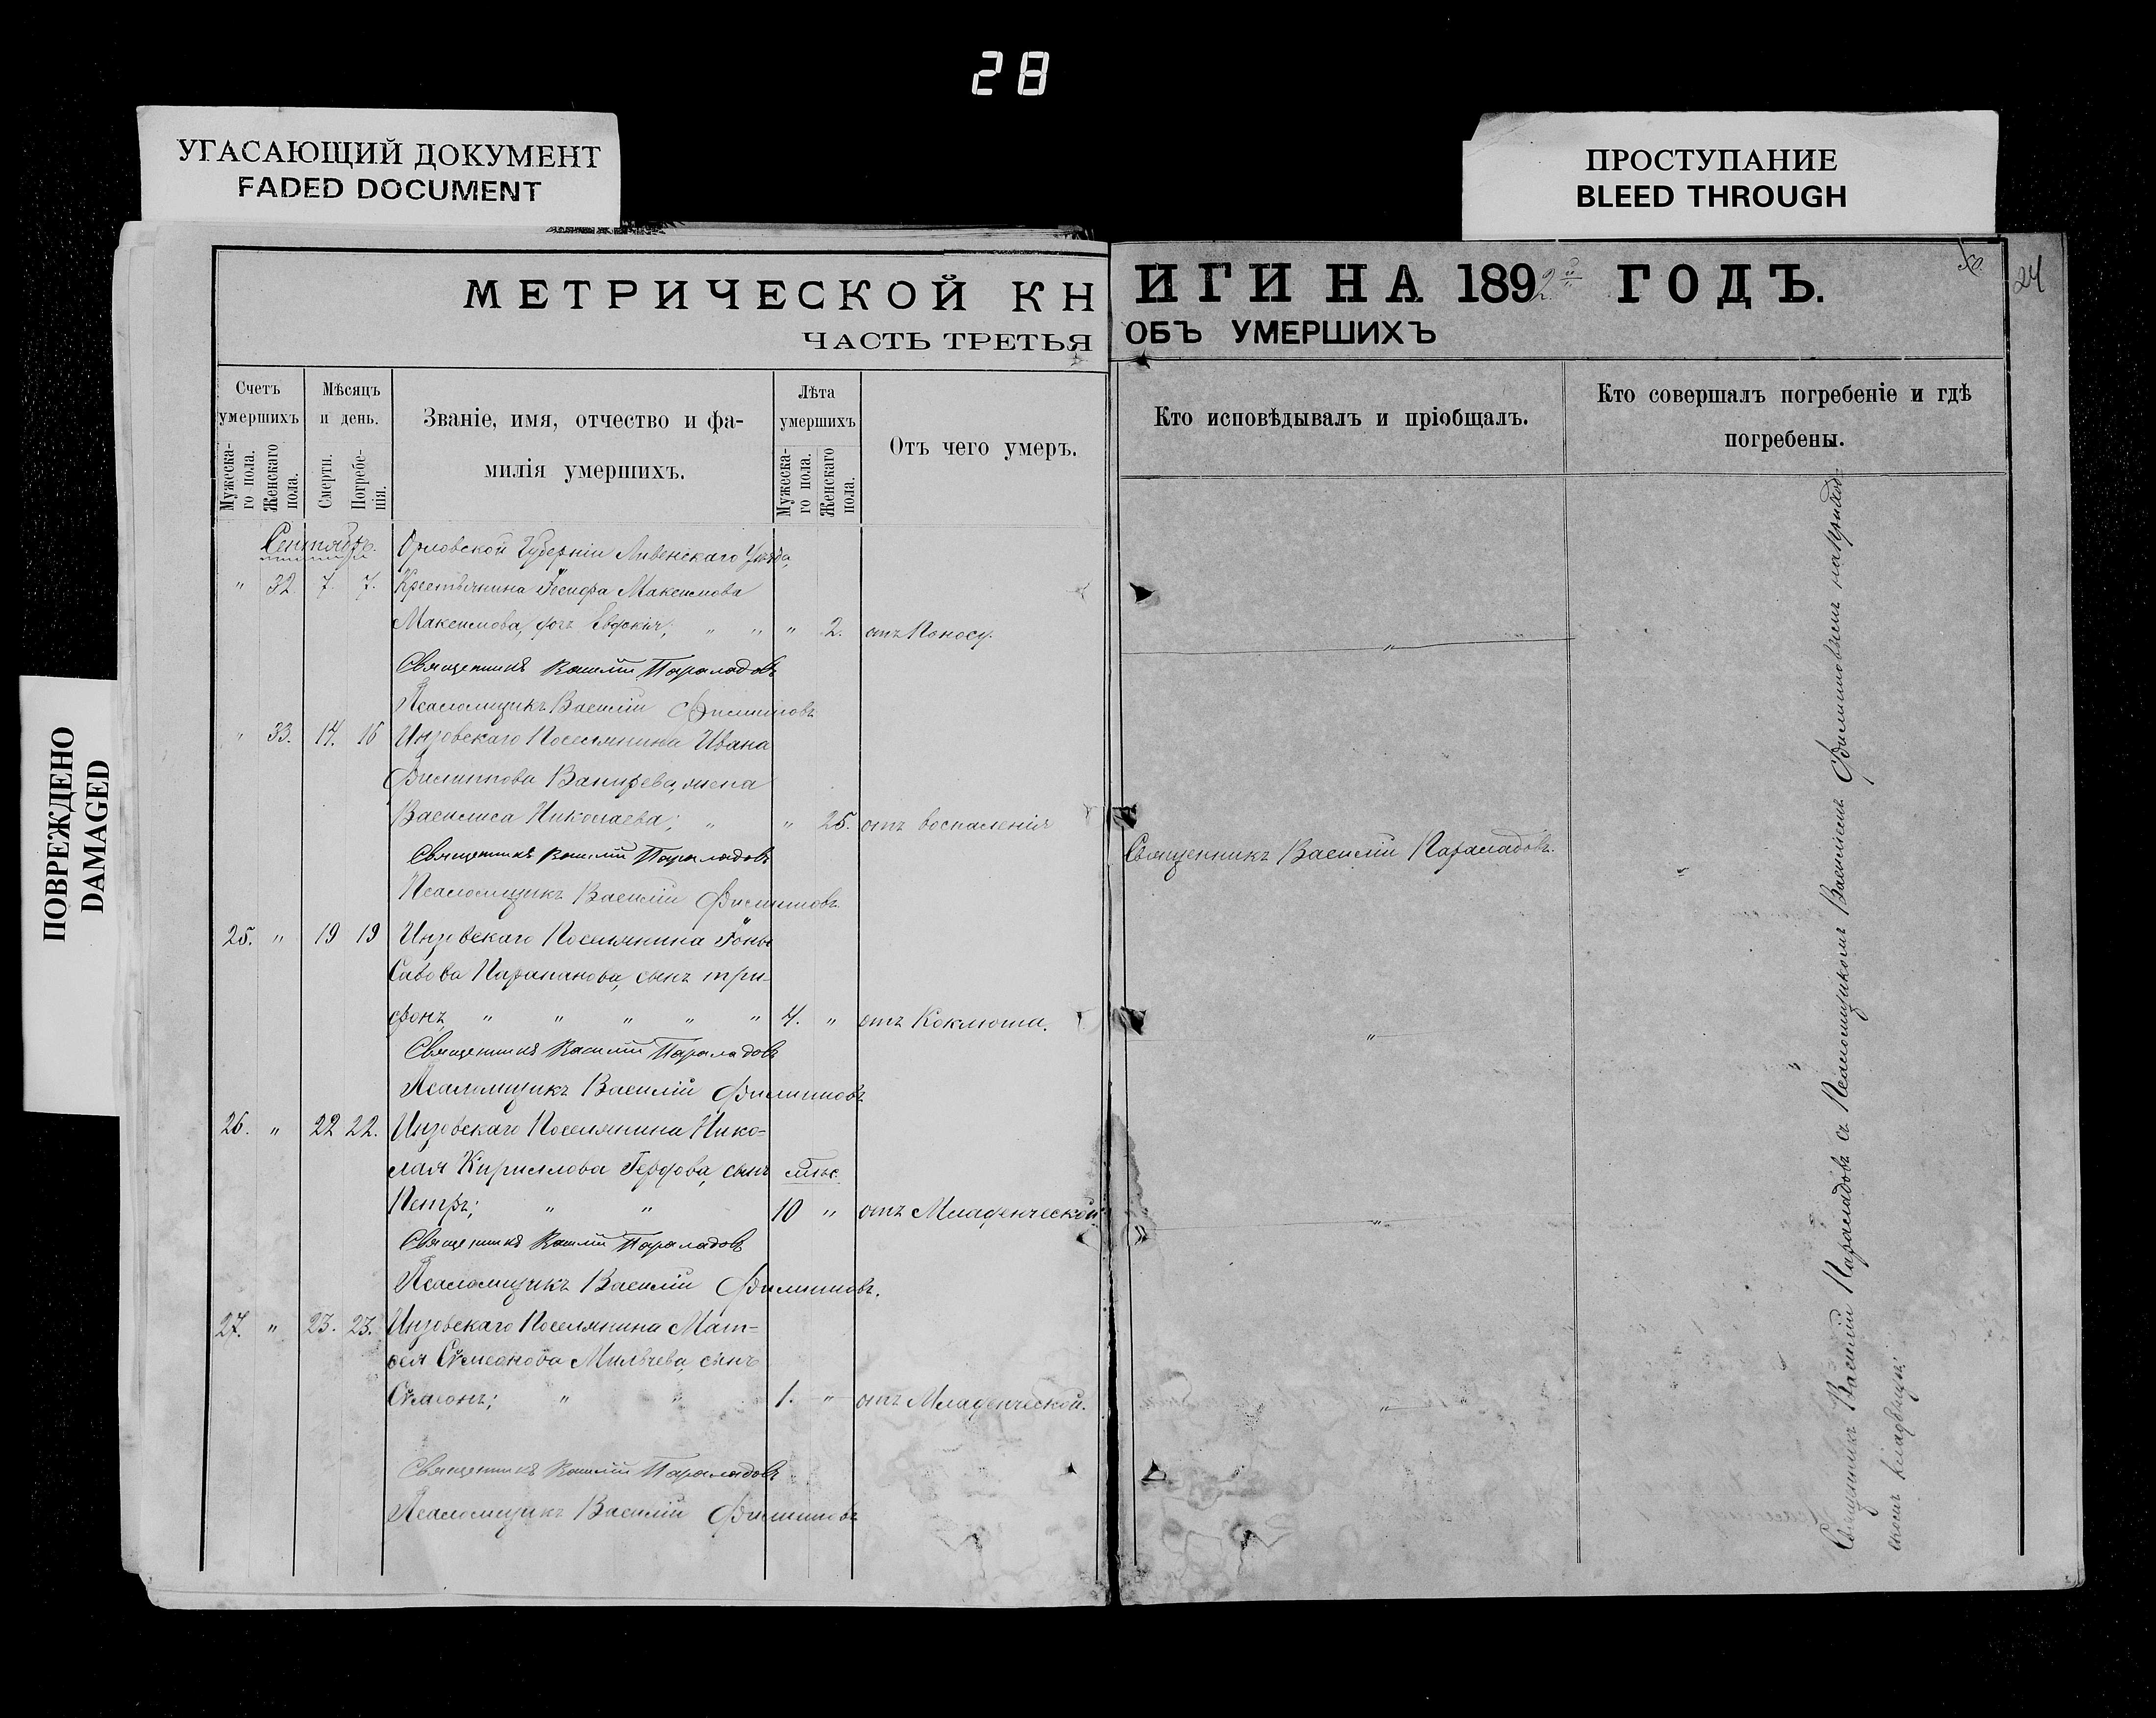 28
УГАСАЮЩИЙ ДОКУМЕНТ
FADED DOCUMENT
ПРОСТУПАНИЕ
BLEED THROUGH
ПОВРЕЖДЕНО
DAMAGED
МЕТРИЧЕСКОЙ КН
ЧАСТЬ ТРЕТЬЯ
Счетъ умершихъ
Мужеска-го пола.
Женскаго пола.
Мѣсяцъ и день.
Смерти.
Погребе-нія.
Званіе, имя, отчество и фа-
милія умершихъ.
Лѣта умершихъ
Мужеска-го пола.
Женскаго пола.
Отъ чего умеръ.
Сентябрь. Орловской Губерніи Ливенскаго Уѣзда,
" 32 7. 7. Крестьянина Іосифа Максимова
Максимова, дочь " " " 2. отъ Поносу.
Священникъ Василій Параладовъ
Псаломщикъ Василій Филиповъ
" 33. 14. 16 Инзовскаго Поселянина Ивана
Филиппова жена
Василиса Николаева; " " 25. отъ воспаленія
Священникъ Василій Параладовъ
Псаломщикъ Василій Филиповъ.
25. " 19 19 Инзовскаго Поселянина Іоны
Савова сынъ три-
фонъ, " " " " " 4. " отъ Коклюша.
Священникъ Василій Параладовъ
Псаломщикъ Василій Филиповъ
26. " 22 22. Инзовскаго Поселянина Нико-
лая Кириллова сынъ мѣс.
Петръ; " " 10 " отъ Младенческой.
Священникъ Василій Параладовъ
Псаломщикъ Василій Филиповъ.
27. " 23. 23. Инзовскаго Поселянина Мат-
ѳея Симеонова Мильчева, сынъ
Симеонъ; " " 1. " отъ Младенческой.
Священникъ Василій Параладовъ
Псаломщикъ Василій Филиповъ
ИГИ НА 1892й ГОДЪ.
50.
24
ОБЪ УМЕРШИХЪ
Кто исповѣдывалъ и пріобщалъ.
Кто совершалъ погребеніе и гдѣ
погребены.
"
Священникъ Василій Параладовъ. "
" "
"
"
Священникъ Василій Параладовъ съ Псаломщикомъ Василіемъ Филиповымъ на приход-
скомъ кладбищѣ.